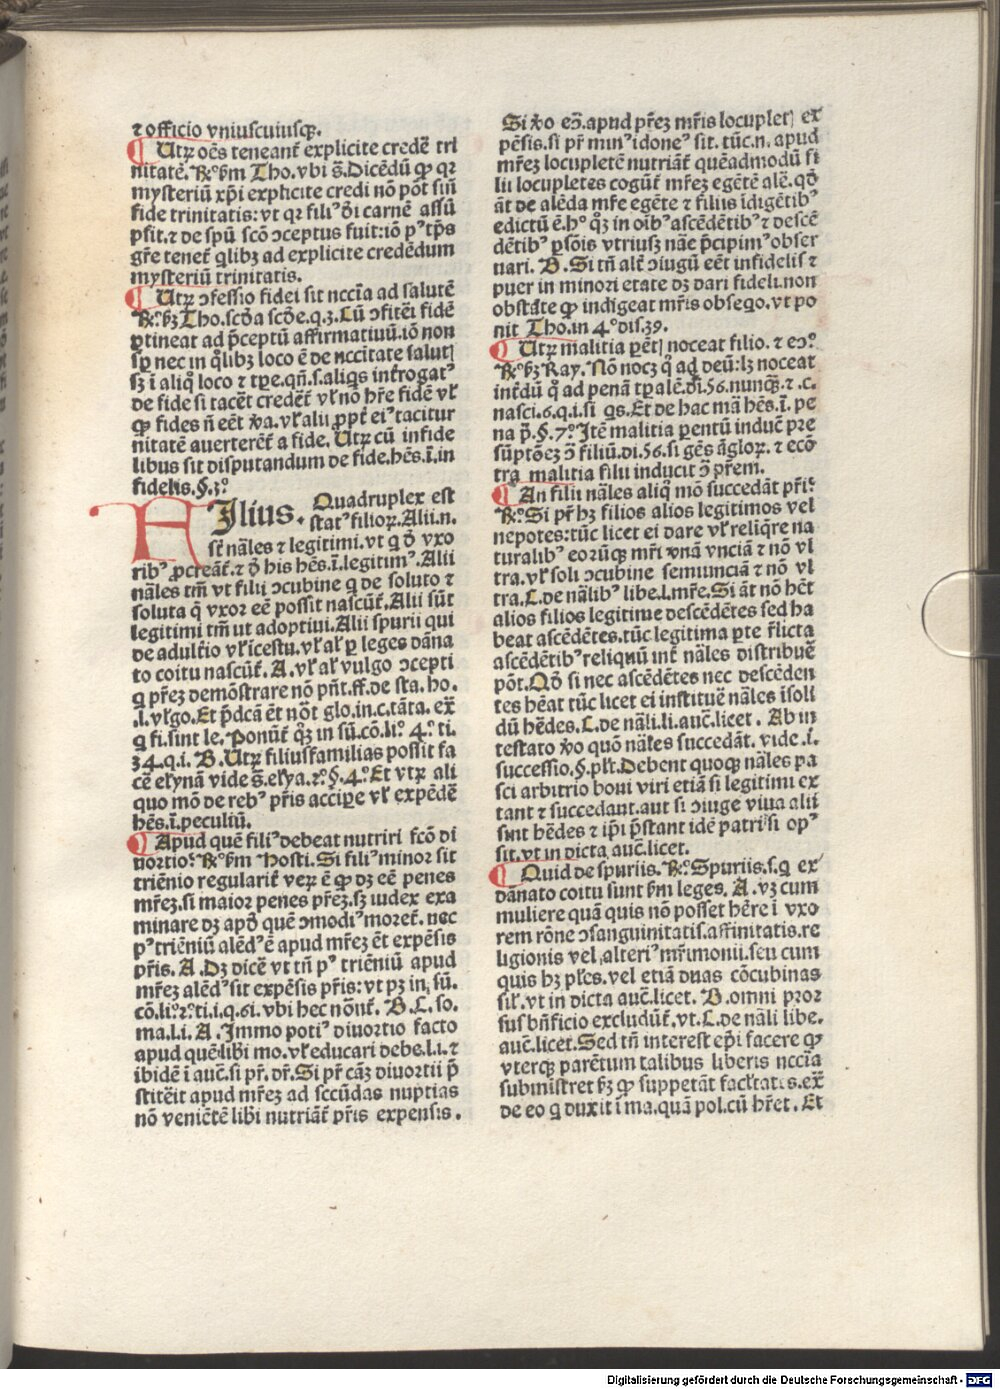 ⁊ officio vniuscuiusqꝫ.
¶ Utꝝ oẽs teneant᷑ explicite credẽ tri
nitatẽ. ℞º ẜm Tho. vbi s̃. Dicẽdũ ꝙ qꝛ
mysteriũ xp̃i explicite credi nõ põt sin̄
fide trinitatis: vt qꝛ filiꝰ d̃i carnẽ assũ
psit. ⁊ de spũ scõ ↄceptus fuit: iõ pꝰ tp̃s
gr̃e tenet᷑ qlibꝫ ad explicite credẽdum
mysteriũ trinitatis.
¶ Utꝝ ↄfessio fidei sit nccĩa ad salutẽ
℞º ẜꝫ Tho. scd̃a scd̃e. q. 3. Cũ ↄfitẽi fidẽ
ꝑtineat ad p̃ceptũ affirmatiuũ. iõ non
sꝑ nec in q̊libꝫ loco ẽ de nccĩtate salutꝭ
sꝫ ĩ aliq̊ loco ⁊ tꝑe. qñ. s. aliqs int̃rogatꝰ
de fide si tacẽt credẽt᷑ vł nõ hr̃e fidẽ vł
ꝙ fides ñ eẽt ṽa. vł alii ꝓpt̃ eiꝰ tacitur
nitatẽ auerterẽt᷑ a fide. Utꝝ cũ infide
libus sit disputandum de fide. hẽs. ĩ. in
fidelis. §. 3º
FIlius. Quadruplex est
statꝰ filioꝝ. Alii. n.
st̃ nãles ⁊ legitimi. vt q d̃ vxo
ribꝰ ꝓcreãt᷑. ⁊ d̃ his hẽs. ĩ. legitimꝰ. Alii
nãles tm̃ vt filii ↄcubine q de soluto ⁊
soluta q̃ vxor eẽ possit nascũt᷑. Alii sũt
legitimi tm̃ ut adoptiui. Alii spurii qui
de adult̃io vł ĩcestu. vł ał ꝑ leges dãna
to coitu nascũt᷑. A. vł ał vulgo ↄcepti
q pr̃eꝫ demõstrare nõ pñt. ff. de sta. ho.
.l. vłgo. Et p̃dcã ẽt nõt glo. in. c. tãta. ex̃
q fi. sint le. Ponũt᷑ q̊ꝫ in sũ. cõ. li.º 4.º ti.
34. q. i. B. Utꝝ filiusfamilias possit fa
cẽ elynã vide s̃. elya. 2.º §. 4.º Et vtꝝ ali
quo mõ de rebꝰ pr̃is acciꝑe vł expẽdẽ
hẽs. ĩ. peculiũ.
¶ Apud quẽ filiꝰ debeat nutriri fcõ di
uortio? ℞º ẜm Hosti. Si filiꝰ minor sit
triẽnio regularit᷑ veꝝ ẽ ꝙ dꝫ eẽ penes
mr̃eꝫ. si maior penes pr̃eꝫ. sꝫ iudex exa
minare dꝫ apd̃ quẽ ↄmodiꝰ moret᷑. nec
pꝰ triẽniũ alẽdꝰ ẽ apud mr̃eꝫ ẽt expẽsis
pr̃is. A. Dꝫ dicẽ vt tñ pꝰ triẽniũ apud
mr̃eꝫ alẽdꝰ sit expẽsis pr̃is: vt pꝫ in, sũ.
cõ. li.º 2.º ti. i. q. 61. vbi hec nõnt᷑. B. C. so.
ma. l. i. A. Immo potiꝰ diuortio facto
apud quẽ libi mo. vł educari debe. l. i. ⁊
ibidẽ ĩ auc̃. si pr̃. dr̃. Si pr̃ cãꝫ diuortii p̃
stitẽit apud mr̃eꝫ ad sccũdas nuptias
nõ veniẽtẽ libi nutriãt᷑ pr̃is expensis.
Si ṽo eↄ̃. apud pr̃eꝫ mr̃is locupletꝭ ex
pẽsis. si pr̃ minꝰ idoneꝰ sit. tũc. n. apud
mr̃eꝫ locupletẽ nutriãt᷑ quẽadmodũ fi
lii locupletes cogũt᷑ mr̃eꝫ egẽtẽ alẽ. qd̃
ãt de alẽda mr̃e egẽte ⁊ filiis ĩdigẽtibꝰ
edictũ ẽ. hº q̊ꝫ in oĩbꝰ ascẽdẽtibꝰ ⁊ descẽ
dẽtibꝰ ꝑsõis vtriusqꝫ nãe p̃cipimꝰ obser
uari. B. Si tñ alt̃ ↄiugũ eẽt infidelis ⁊
puer in minori etate dꝫ dari fideli. non
obstãte ꝙ indigeat mr̃is obseqo. vt po
nit Tho. in 4.º dis. 39.
¶ Utꝝ malitia pẽtꝭ noceat filio. ⁊ eↄ̃?
℞º ẜꝫ Ray. Nõ nocꝫ q̊ ad deũ: lꝫ noceat
int̃dũ q̊ ad penã tꝑalẽ. di. 56. nunqꝫ. ⁊. c.
nasci. 6. q. i. si qs. Et de hac mã hẽs. ĩ. pe
na p̃. §. 7.º Itẽ malitia ꝑentũ inducẽ pre
sũptõeꝫ ↄ̃ filiũ. di. 56. si gẽs ãgloꝝ. ⁊ ecõ
tra malitia filii inducit ↄ̃ pr̃em.
¶ An filii nãles aliq̊ mõ succedãt pr̃i?
℞º Si pr̃ hꝫ filios alios legitimos vel
nepotes: tũc licet ei dare vł reliq̃re na
turalibꝰ eoꝝũqꝫ mr̃i vnã vnciã ⁊ nõ vł
tra. vł soli ↄcubine semiunciã ⁊ nõ vl
tra. C. de nãlibꝰ libe. l. mr̃e. Si ãt nõ hẽt
alios filios legitime descẽdẽtes sed ha
beat ascẽdẽtes. tũc legitima ꝑte r̃licta
ascẽdẽtibꝰ reliquũ int̃ nãles distribuẽ
põt. Qd̃ si nec ascẽdẽtes nec descẽden
tes hẽat tũc licet ei instituẽ nãles ĩsoli
dũ hẽdes. C. de nãli. li. auc̃. licet. Ab in
testato ṽo quõ nãles succedãt. vide. ĩ.
successio. §. płt. Debent quoqꝫ nãles pa
sci arbitrio boni viri etiã si legitimi ex
tant ⁊ succedant. aut si ↄiuge viua alii
sint hẽdes ⁊ ip̃i p̃stant idẽ patri si opꝰ
sit. vt in dicta auc̃. licet.
¶ Quid de spuriis. ℞º Spuriis. s. q ex
dãnato coitu sunt ẜm leges. A. vꝫ cum
muliere quã quis nõ posset hẽre ĩ vxo
rem rõne ↄsanguinitatis. affinitatis. re
ligionis vel alteriꝰ mr̃imonii. seu cum
quis hꝫ pl̃es. vel etiã duas cõcubinas
sił. vt in dicta auc̃. licet. B. omni pror
sus bñficio excludũt᷑. vt. C. de nãli libe.
auc̃. licet. Sed tñ interest ep̃i facere ꝙ
vterqꝫ parẽtum talibus liberis nccĩa
subministret ẜꝫ ꝙ suppetãt facltates. ex̃
de eo q duxit ĩ ma. quã pol. cũ hr̃et. Et
Digitalisierung gefördert durch die Deutsche Forschungsgemeinschaft - DFG